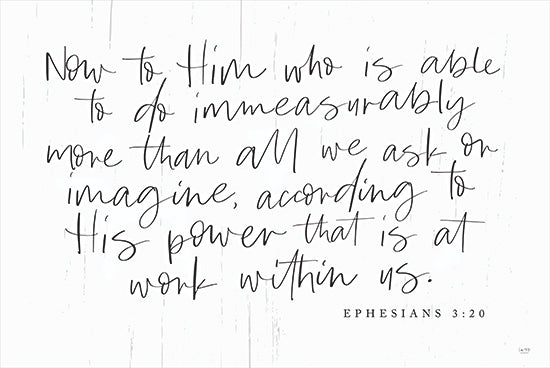 Now to Him who is able
to do immeasurably
more than all we ask or
imagine, according to
His power that is at
work within us.
EPHESIANS 3:20